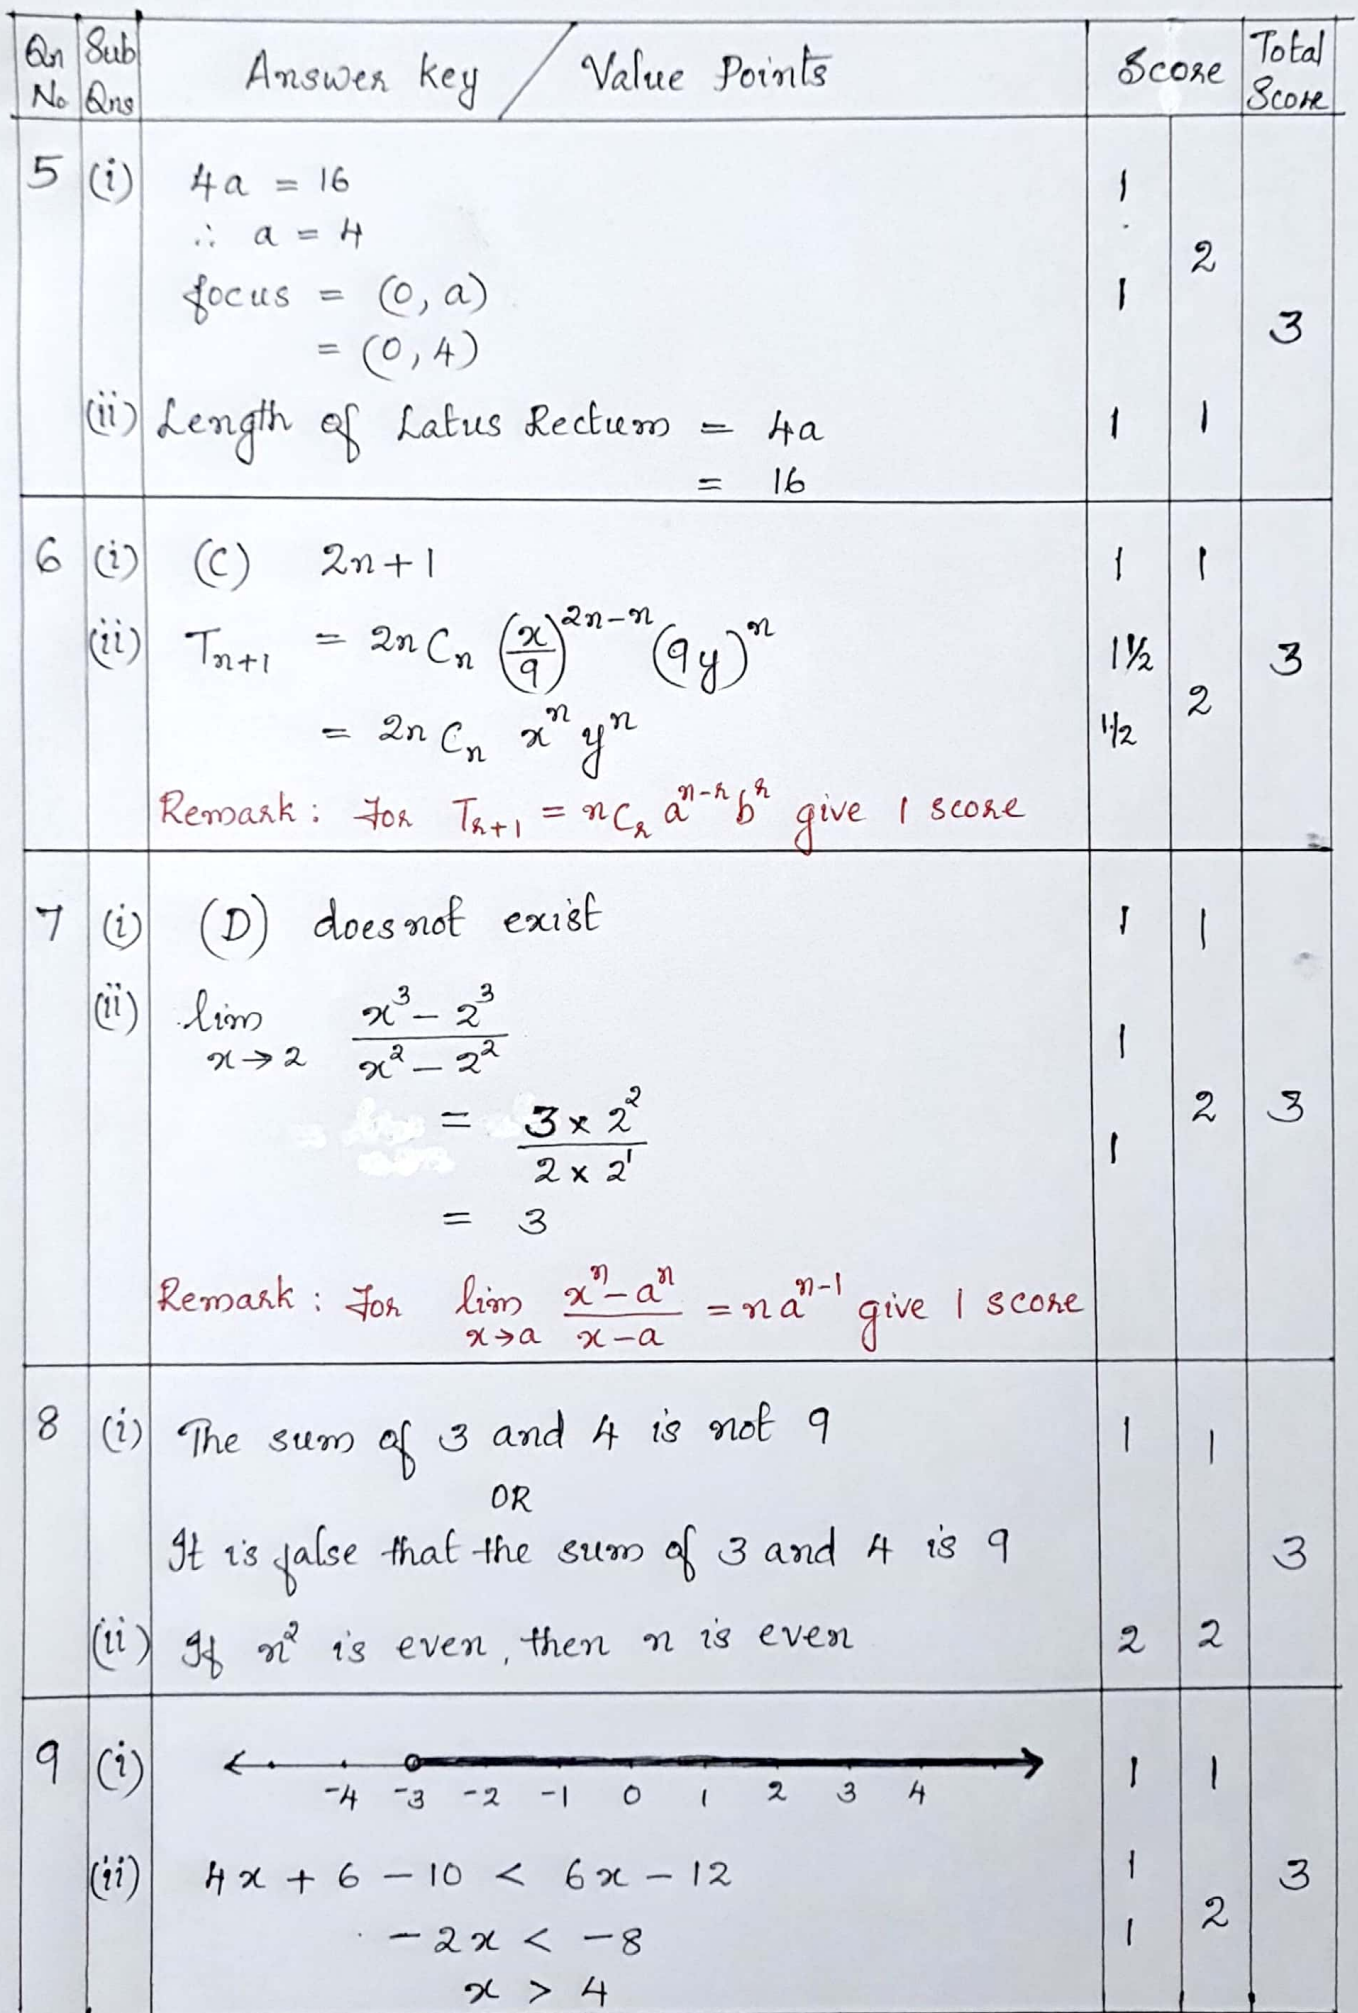 Qn No Sub Qns Answer Key / Value Points Score Total Score
5 (i) 4a = 16 1
∴ a = 4 2
focus = (0, a) 1
= (0, 4) 3
(ii) Length of Latus Rectum = 4a 1 1
= 16
6 (i) (C) 2n+1 1 1
(ii) Tn+1 = 2nCn (x/9)^2n-n (9y)^n 1½ 3
= 2nCn x^n y^n ½ 2
Remark : For Tr+1 = nCr a^n-r b^r give 1 score
7 (i) (D) does not exist 1 1
(ii) lim x→2 x³ - 2³ / x² - 2² 1
= 3 × 2² / 2 × 2¹ 1 2 3
= 3
Remark : For lim x→a x^n - a^n / x - a = n a^n-1 give 1 score
8 (i) The sum of 3 and 4 is not 9 1 1
OR
It is false that the sum of 3 and 4 is 9 3
(ii) If n² is even, then n is even 2 2
9 (i) -4 -3 -2 -1 0 1 2 3 4 1 1
(ii) 4x + 6 - 10 < 6x - 12 1 3
-2x < -8 1 2
x > 4